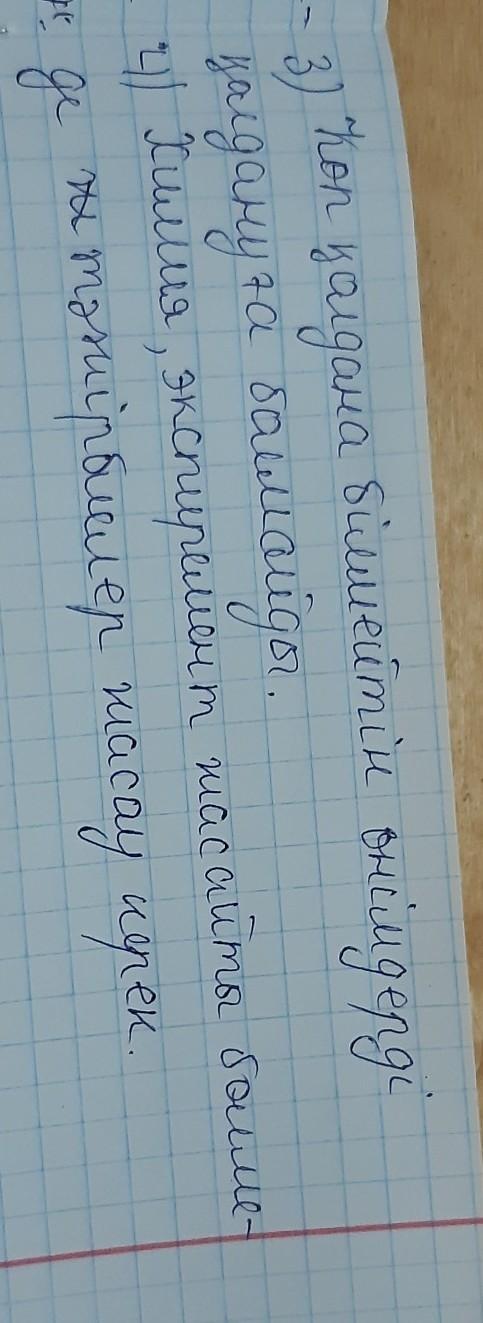 3) Көп қолдана білмейтін өнімдерді
қолдануға болмайды.
4) Химия, эксперимент жасайты бөлме-
де тәжірбиелер жасау керек.